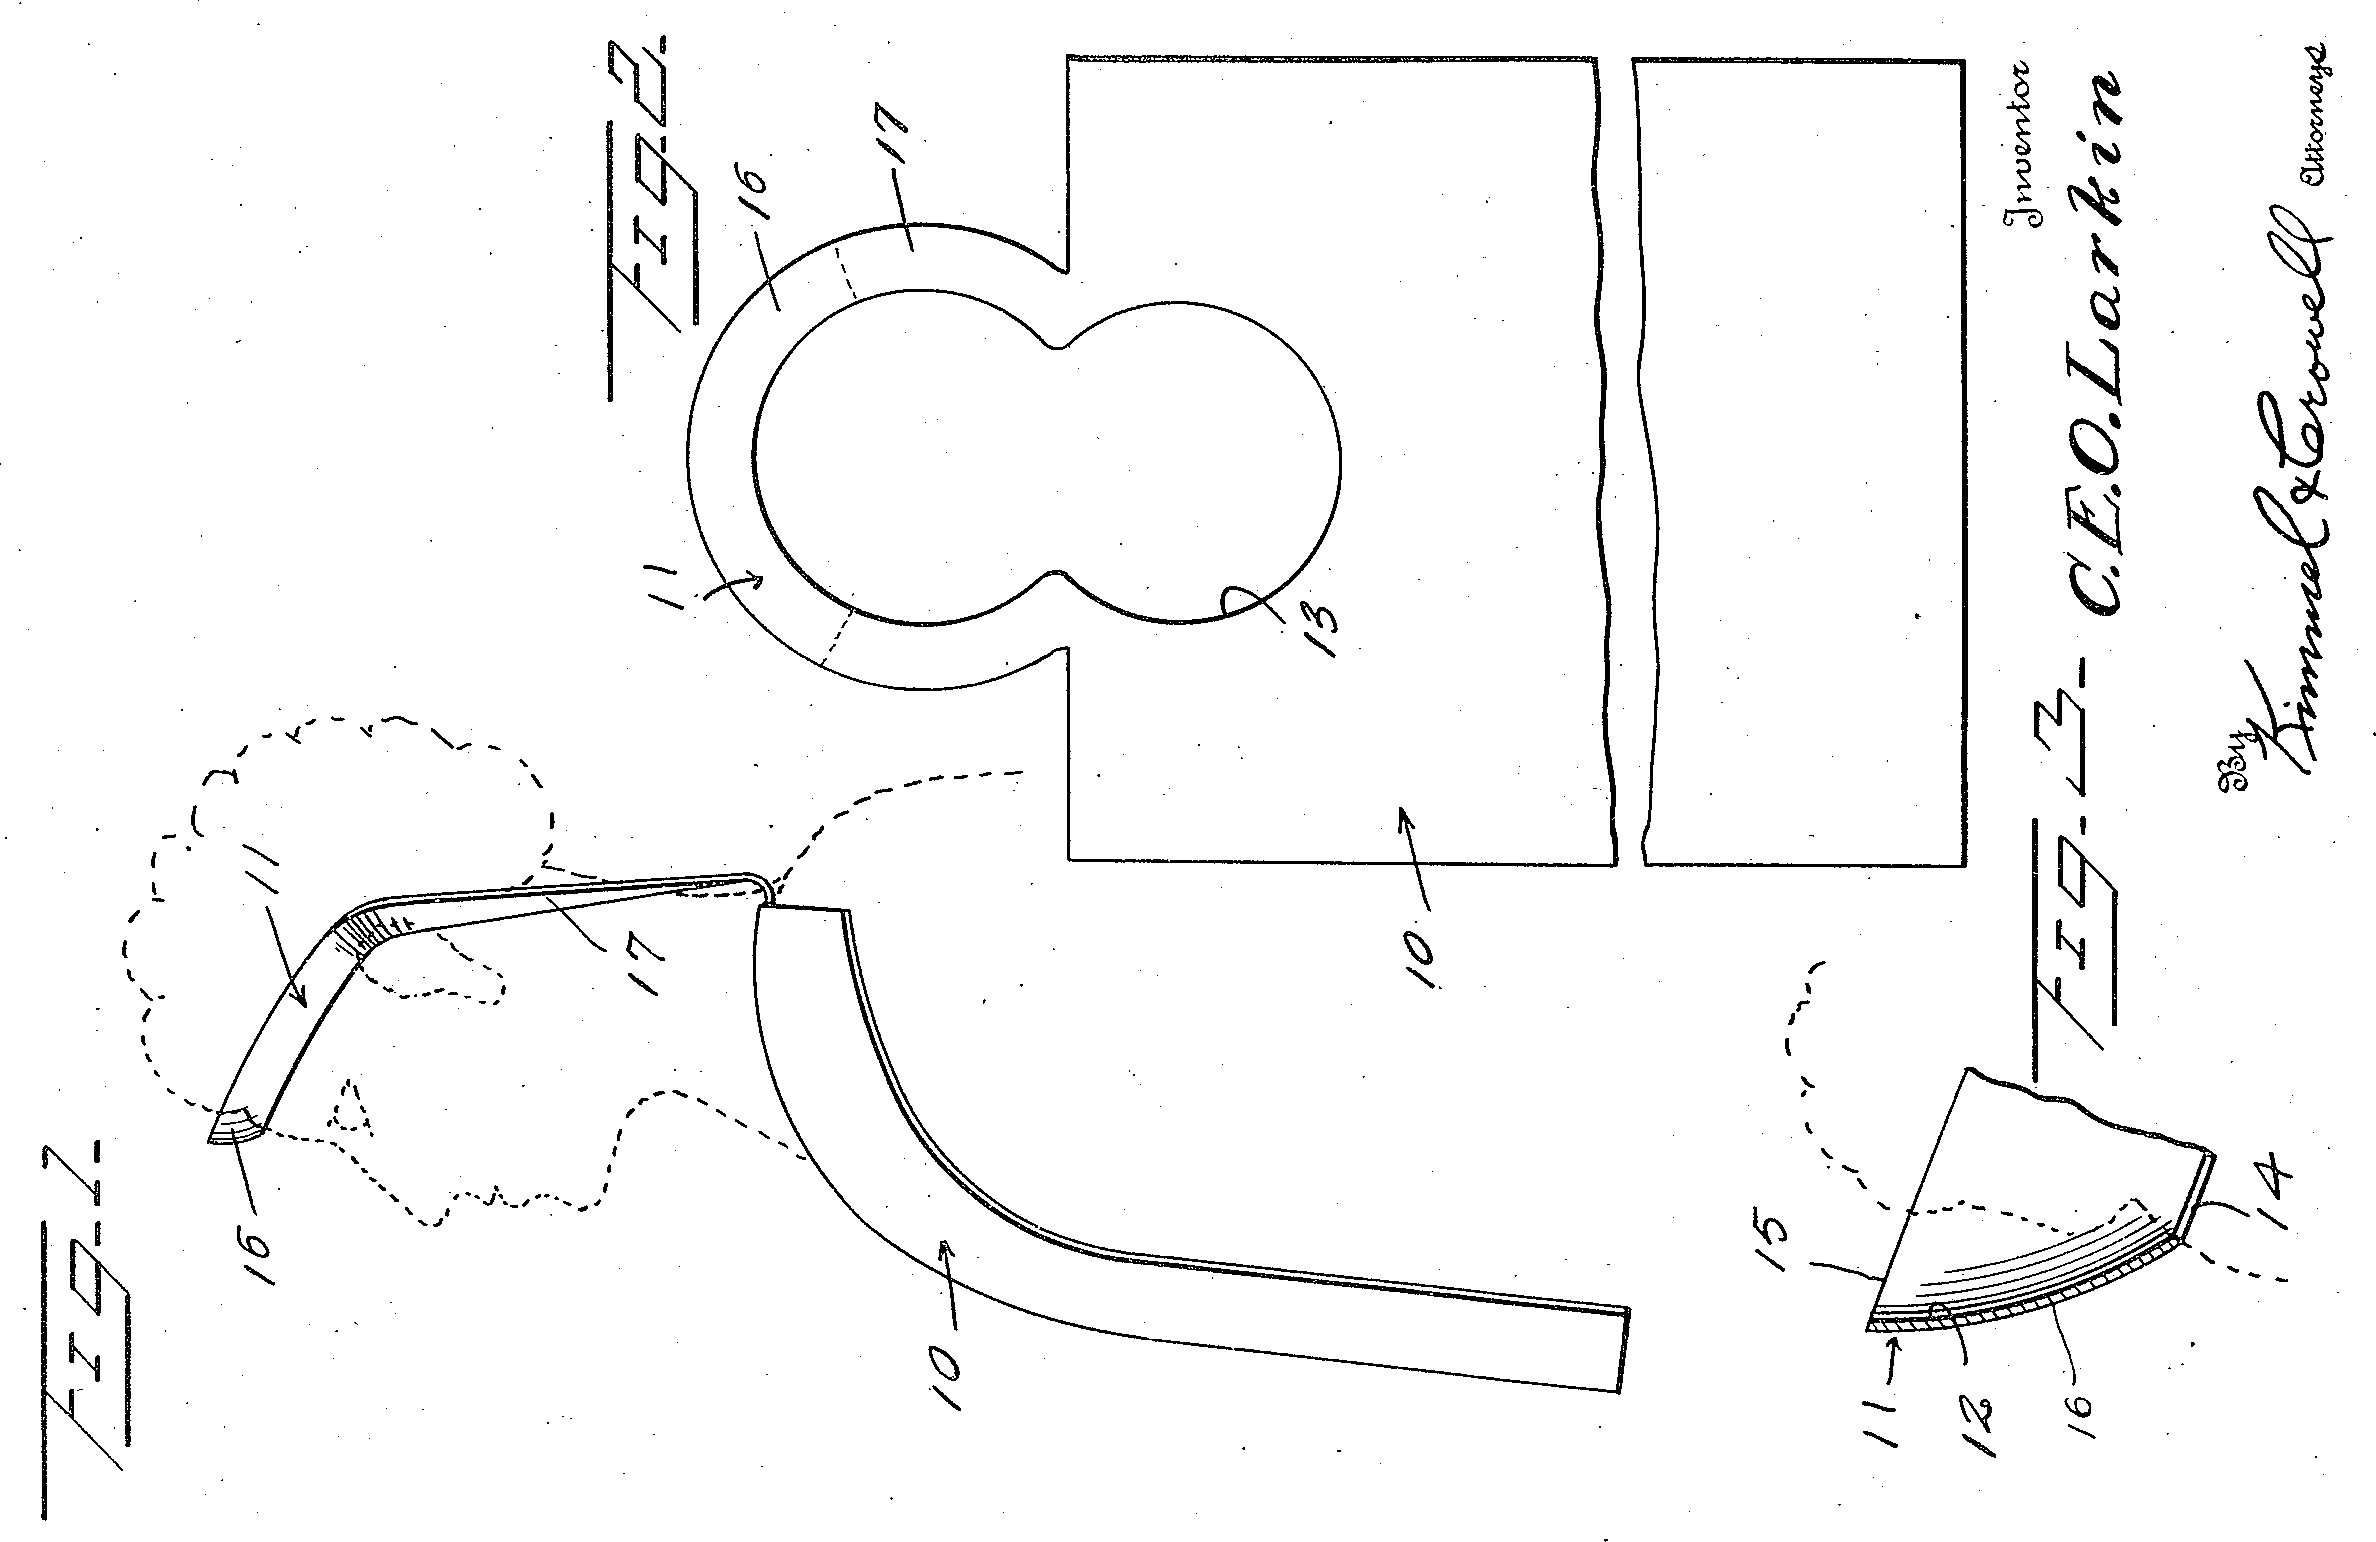 Fig. 1.
11
16
17
10
Fig. 2.
16
17
11
13
10
Fig. 3.
15
14
11
12
16
Inventor
C. E. O. Larkin
By
Kimmel & Crowell
Attorneys